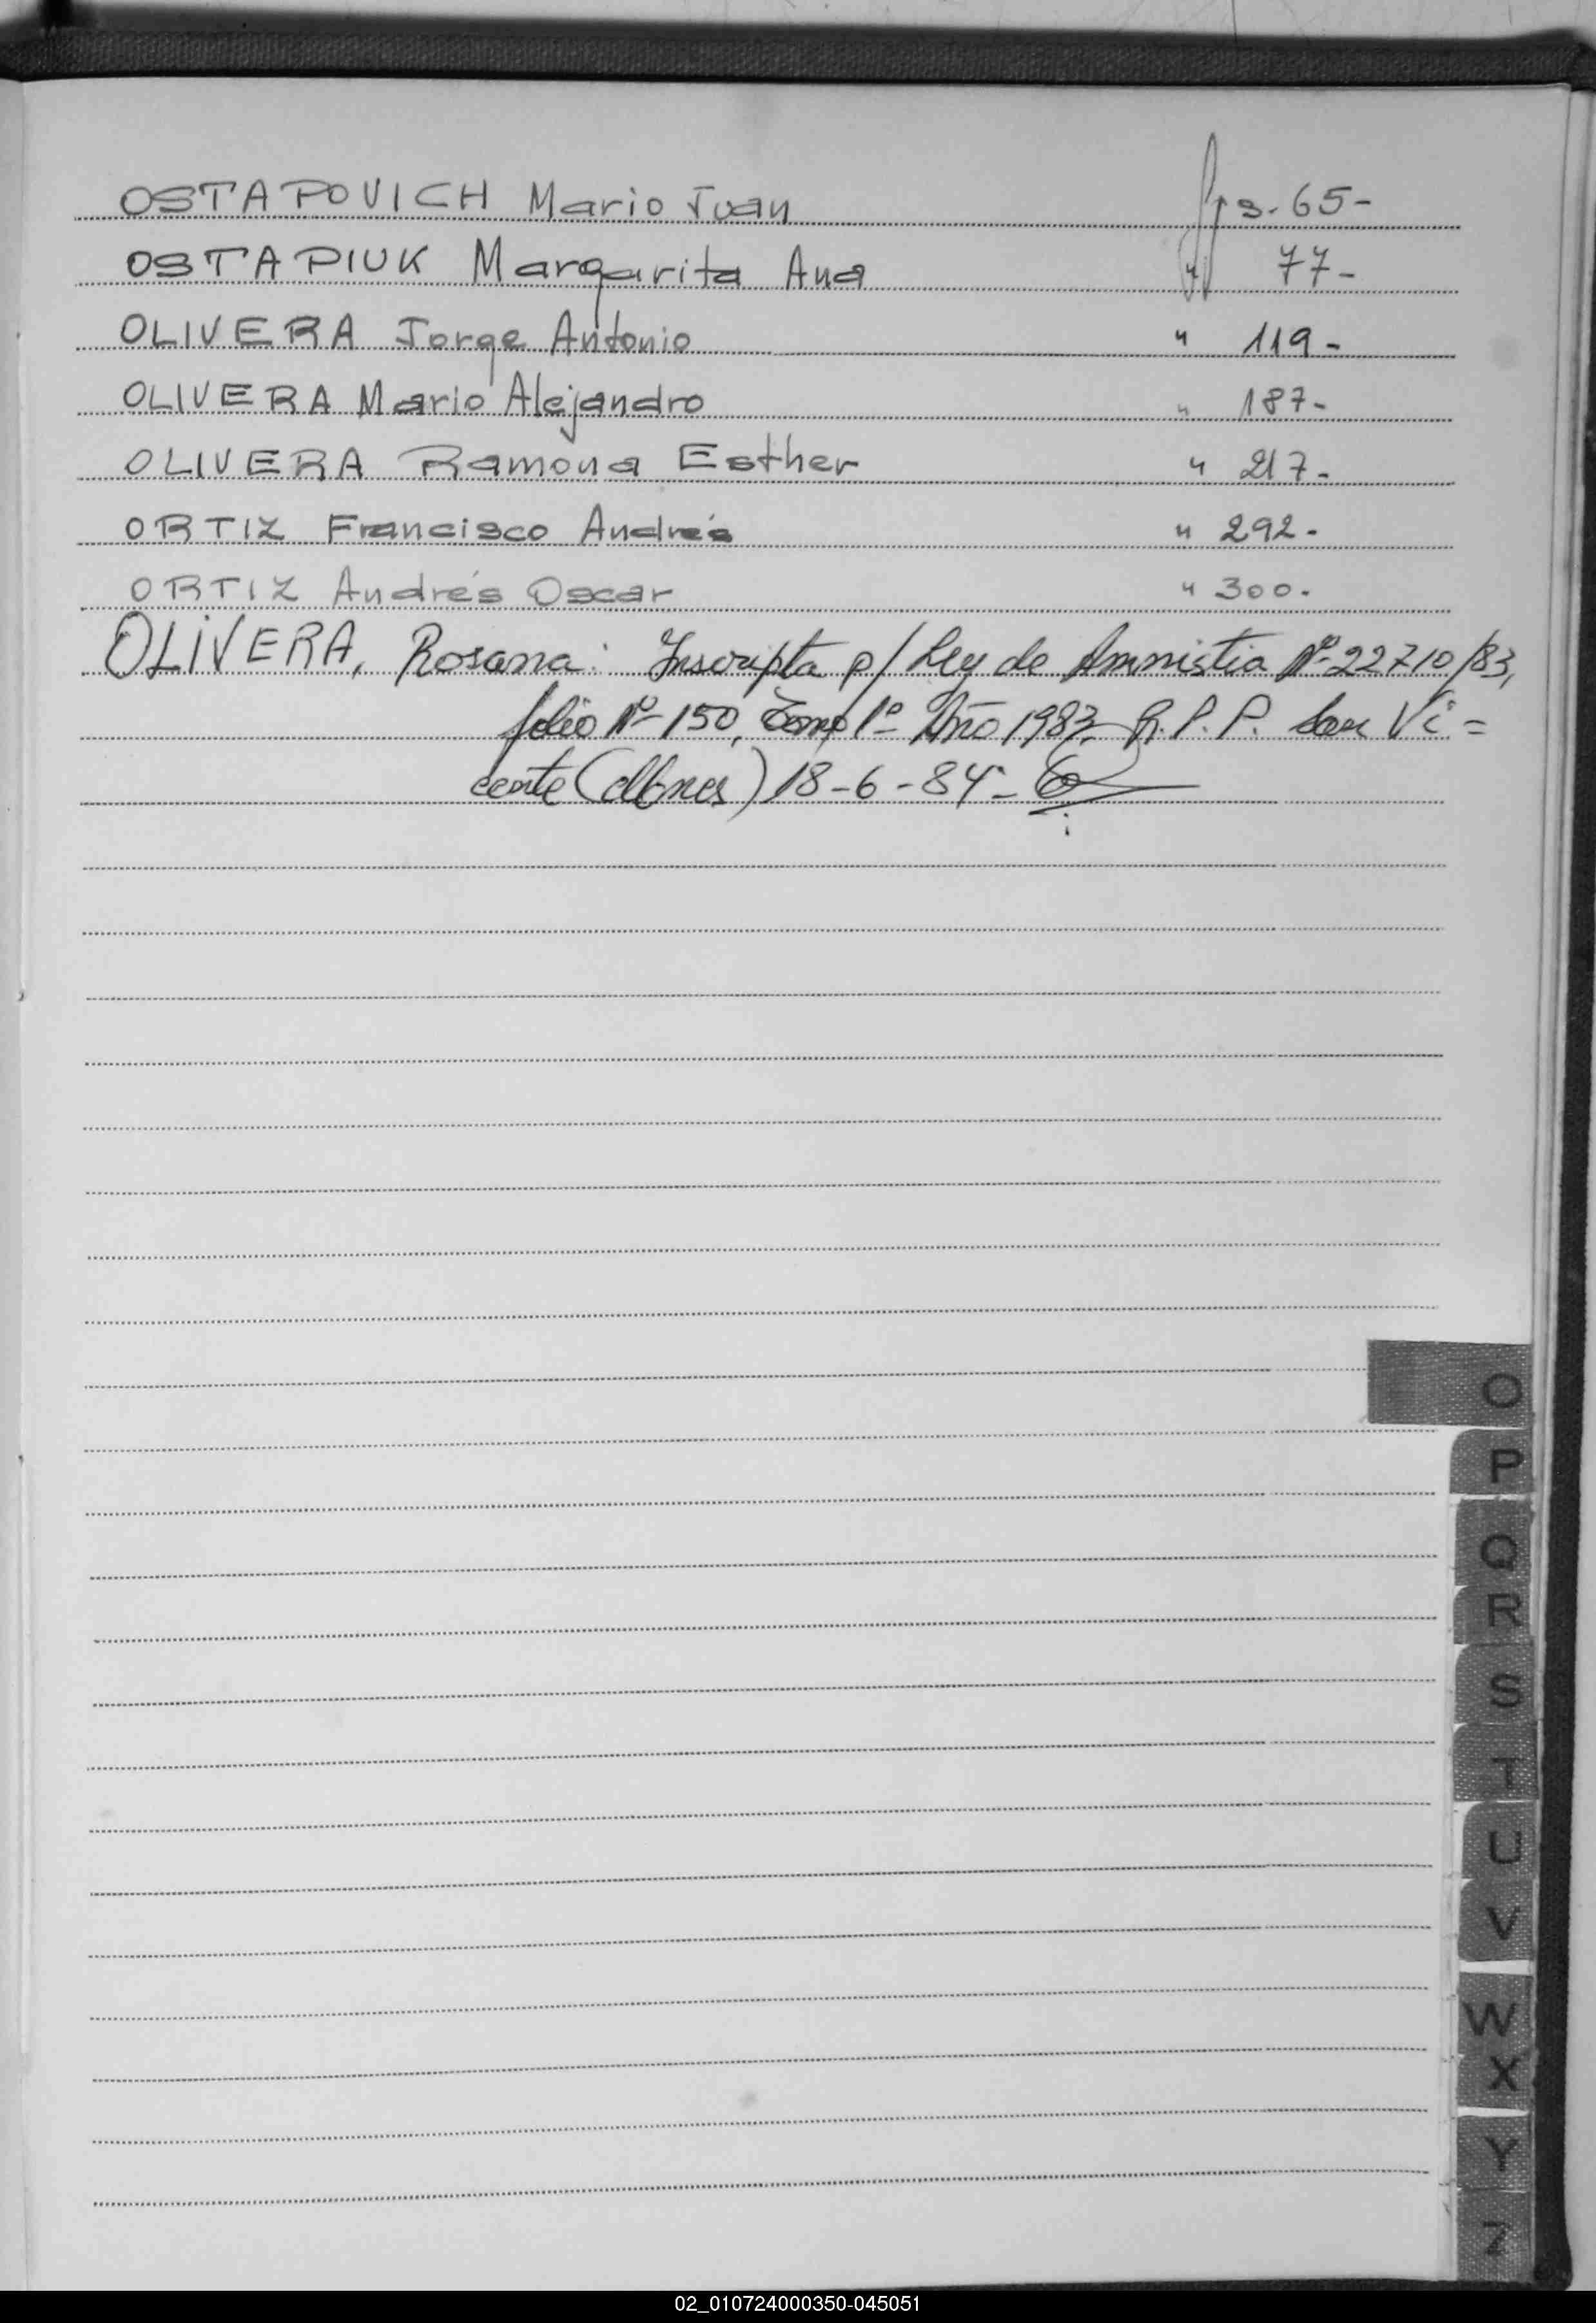 OSTAPOVICH Mario Juan fjs. 65-
OSTAPIUK Margarita Ana " 77-
OLIVERA Jorge Antonio " 119-
OLIVERA Mario Alejandro " 187-
OLIVERA Ramona Esther " 217-
ORTIZ Francisco Andrés " 292-
ORTIZ Andrés Oscar " 300.
OLIVERA, Rosana: Inscripta p/ Ley de Amnistia Nº 22710/83,
folio Nº 150, Tomo 1º Año 1983, R.P.P. San Vi=
cente (Mnes) 18-6-84-
O
P
Q
R
S
T
U
V
W
X
Y
Z
02_010724000350-045051